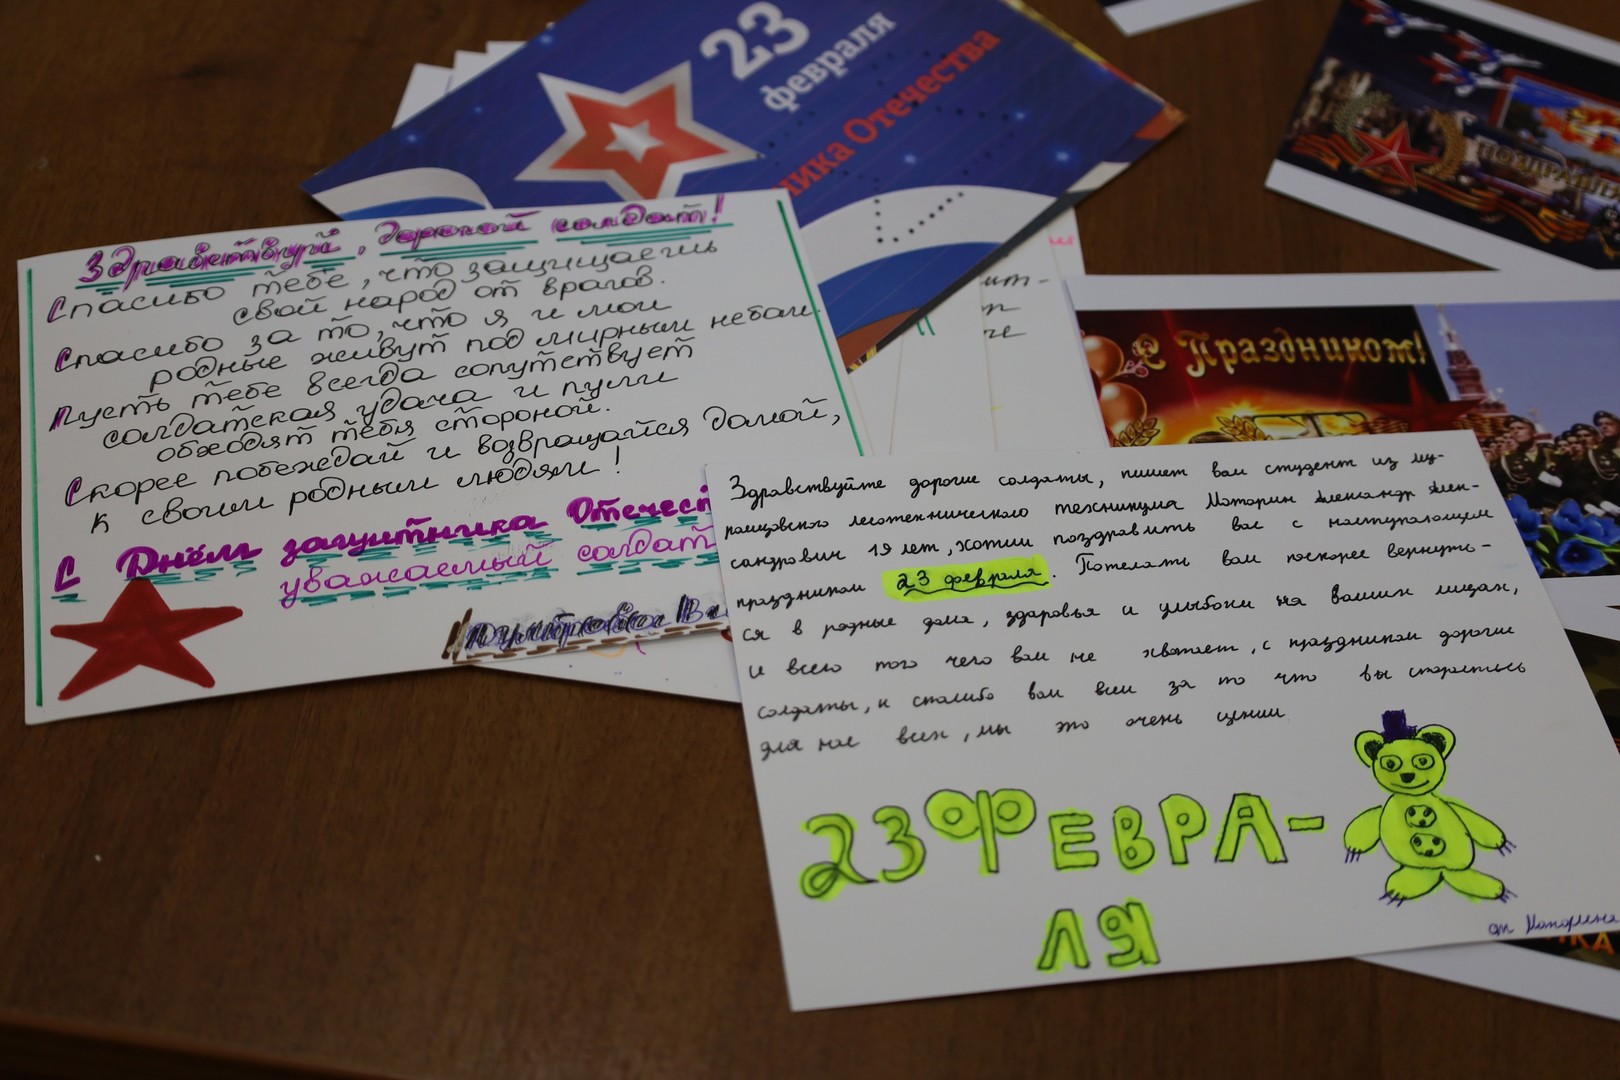 23
февраля
ника Отечества
ПОЗДРАВЛЯ
Здравствуй, дорогой солдат!
Спасибо тебе, что защищаешь
свой народ от врагов.
Спасибо за то, что я и мои
родные живут под мирным небом.
Пусть тебе всегда сопутствует
солдатская удача и пули
обходят тебя стороной.
Скорее побеждай и возвращайся домой,
к своим родным людям!
С Днём защитника Отечест
уважаемый солдат
Дмитровой
С Праздником!
Здравствуйте дорогие солдаты, пишет вам студент из му-
ромцовского лесотехнического техникума Моторин Александр Алек-
сандрович 19 лет, хотим поздравить вас с наступающим
праздником 23 февраля. Пожелать вам поскорее вернуть-
ся в родные дома, здоровья и улыбок на ваших лицах,
и всего того чего вам не хватает, с праздником дорогие
солдаты, и спасибо вам всем за то что вы стараетесь
для нас всех, мы это очень ценим
23 ФЕВРА-
ЛЯ
от Моторина